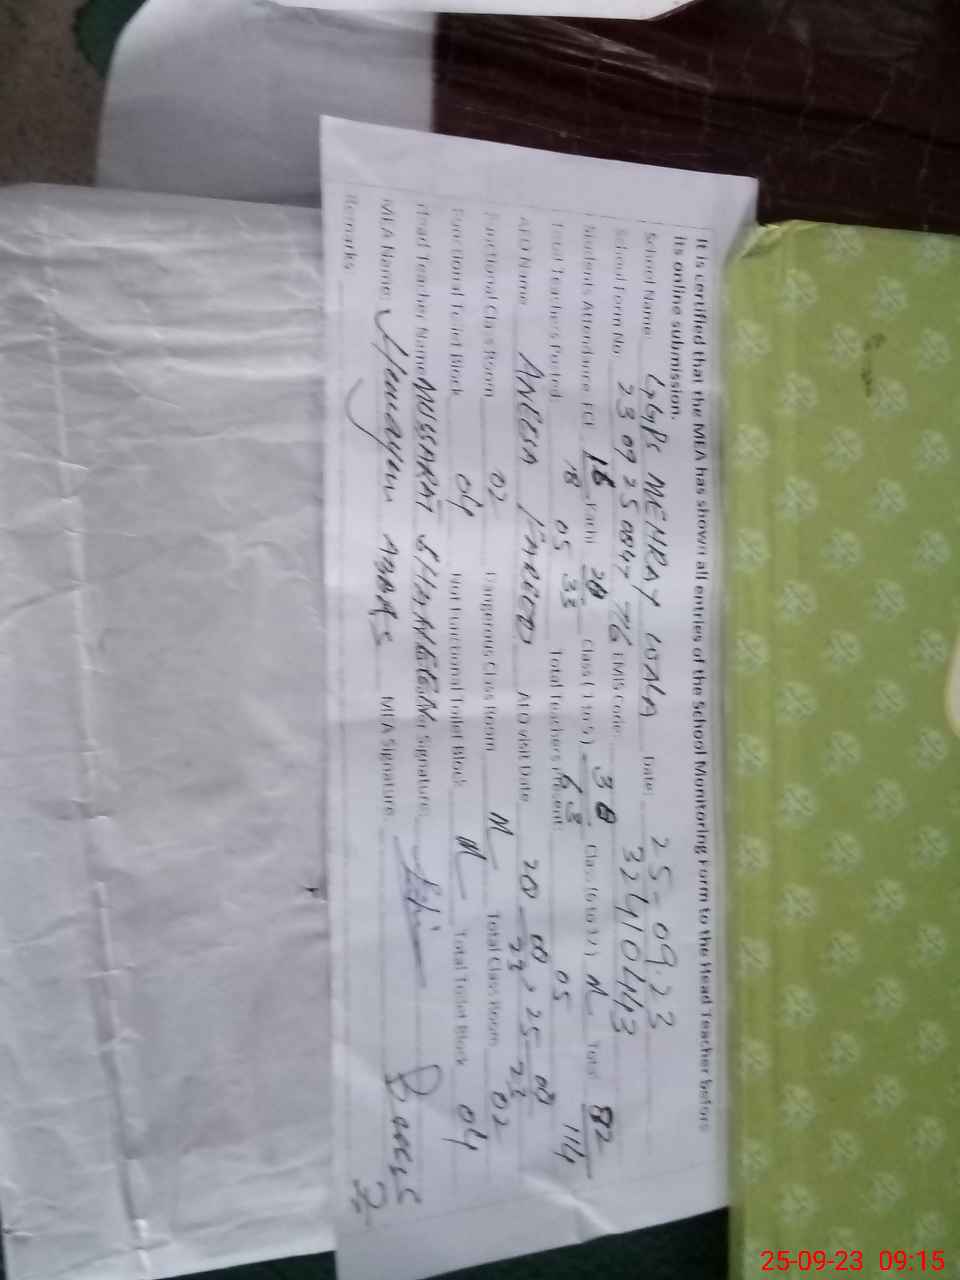 It is certified that the MEA has shown all entries of the School Monitoring Form to the Head Teacher before
its online submission.
School Name: GGPS MEHRAY WALA Date: 25-09-23
School Form No. 23 09 25 0847 76 EMIS Code: 32410443
Students Attendance ECE 16/18 Kachi 28/33 Class (1 to 5) 38/63 Class (6 to Total 82/114
Total Teachers Posted 05 Total Teachers Present: 05
AEO Name AEO Visit Date 20-08-23, 25-08-23
Functional Class Room 02 Dangerous Class Room Total Class Room 02
Functional Toilet Block 04 Not Functional Toilet Block Total Toilet Block 04
Head Teacher Name MUSSARAT SHAHEEN Signature:
MEA Name: Humayun MEA Signature:
Remarks
25-09-23 09:15